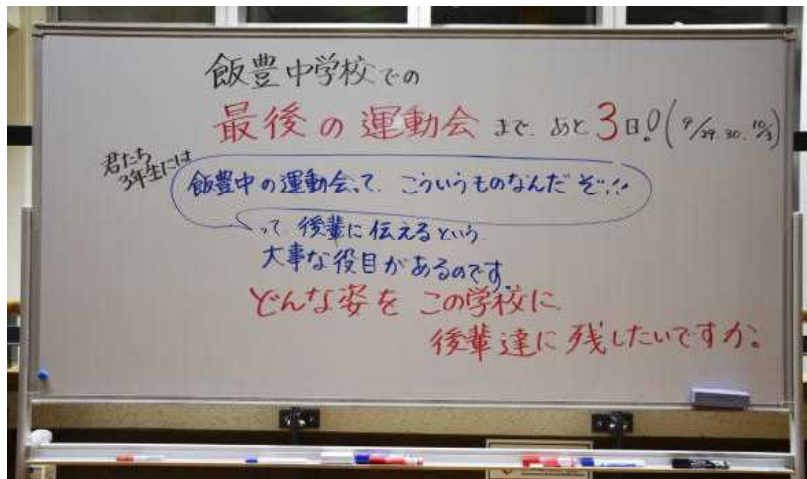 飯豊中学校での
最後の運動会まで、あと3日!(9/29.30.10/3)
君たち
3年生には
飯豊中の運動会って、こういうものなんだぞ!!
って後輩に伝えるという
大事な役目があるのです。
どんな姿をこの学校に
後輩達に残したいですか。